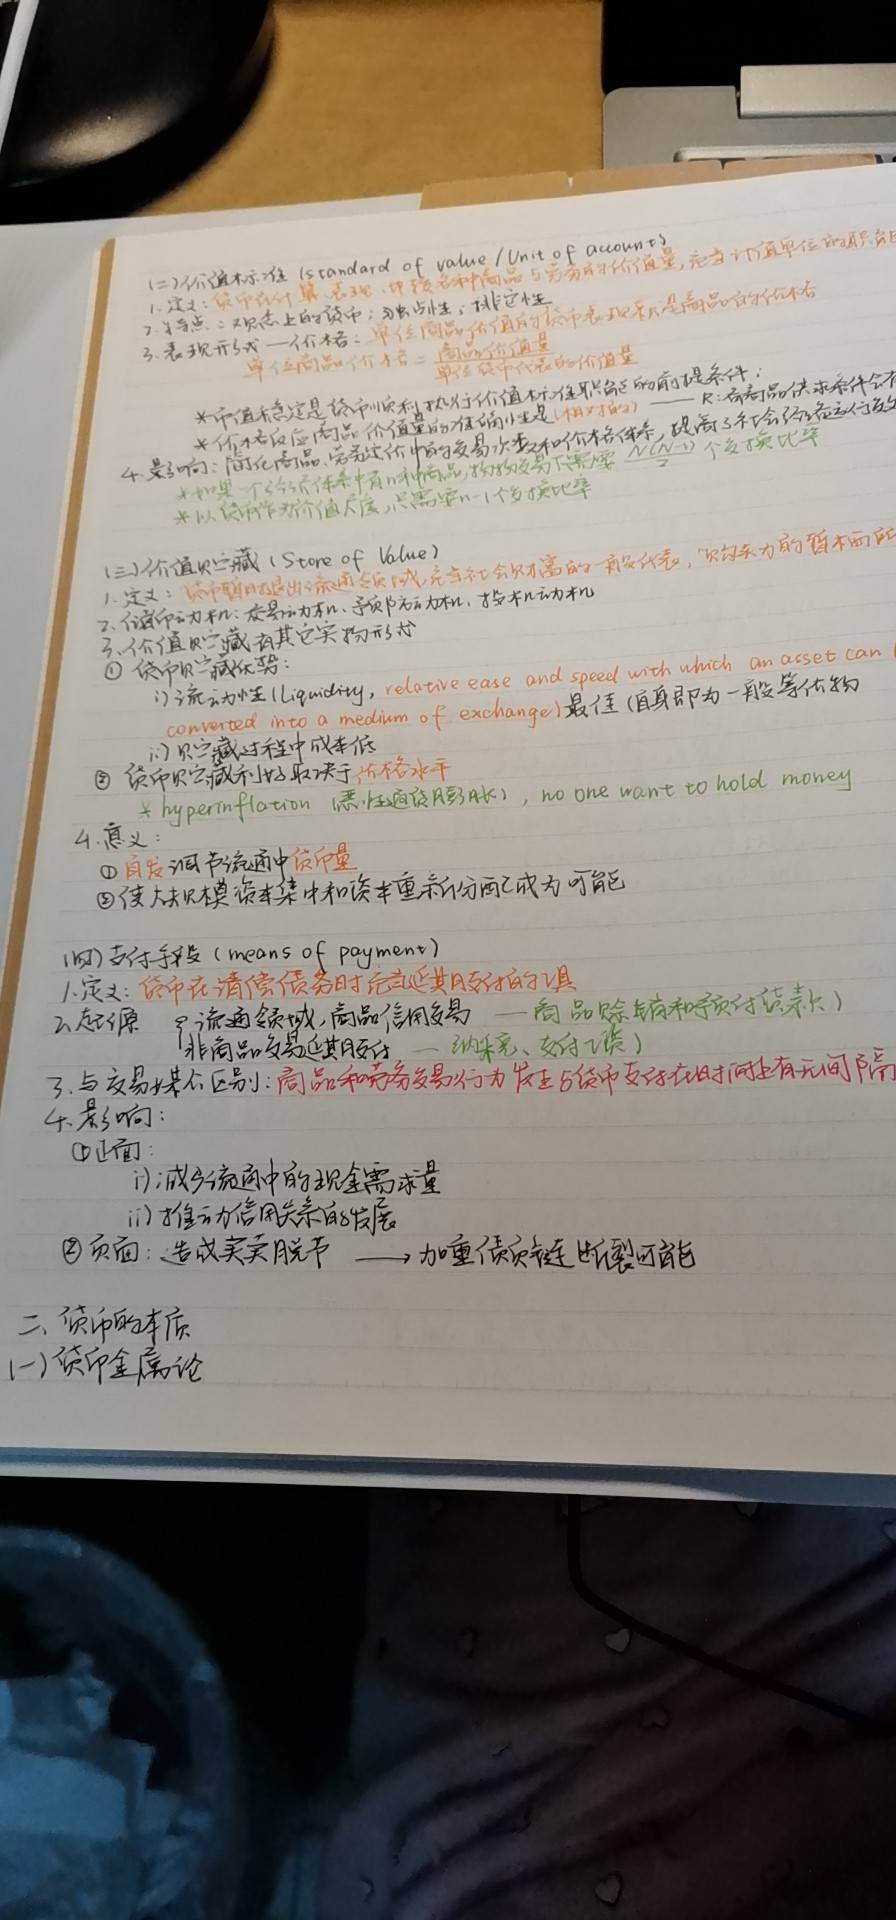 (二)价值标准 (standard of value/Unit of account)
1.定义:货币在计算、表现、衡量各种商品与劳务的价值量,充当计值单位的职能
2.特点:观念上的货币;独占性;排它性
3.表现形式—价格:单位商品价值的货币表现
单位商品价格=商品价值量/单位货币代表的价值量
*币值稳定是货币顺利执行价值标准职能的前提条件;
*价格反应商品价值量的准确性是(相对的)——R:商品供求条件
4.影响:简化商品、劳务定价中的交易次数和价格体系,提高了社会经济运行效
*如果一个经济体系中有n种商品,物物交易下需要 N(N-1)/2 个交换比率
*以货币作为价值尺度,只需要n-1个交换比率
(三)价值贮藏(Store of Value)
1.定义:货币暂时退出流通领域充当社会财富的一般代表,购买力的暂栖所
2.储币动机:交易动机、预防动机、投机动机
3.价值贮藏有其它实物形式
① 货币贮藏优势:
i)流动性(Liquidity, relative ease and speed with which an asset can
converted into a medium of exchange)最佳(自身即为一般等价物
ii)贮藏过程中成本低
② 货币贮藏利好取决于价格水平
* hyperinflation (恶性通货膨胀), no one want to hold money
4.意义:
①自发调节流通中货币量
②使大规模资本集中和资本重新分配成为可能
(四)支付手段(means of payment)
1.定义:货币在清偿债务时充当延期支付的工具
2.起源 流通领域,商品信用交易 — 商品赊销和预付货款)
非商品交易延期支付 — 纳税、支付工资)
3.与交易媒介区别:商品和劳务交易行为发生与货币支付在时间上有无间隔
4.影响:
①正面:
i)减少流通中的现金需求量
ii)推动信用关系的发展
②负面:造成买卖脱节 → 加重债务链断裂可能
二、货币的本质
(一)货币金属论